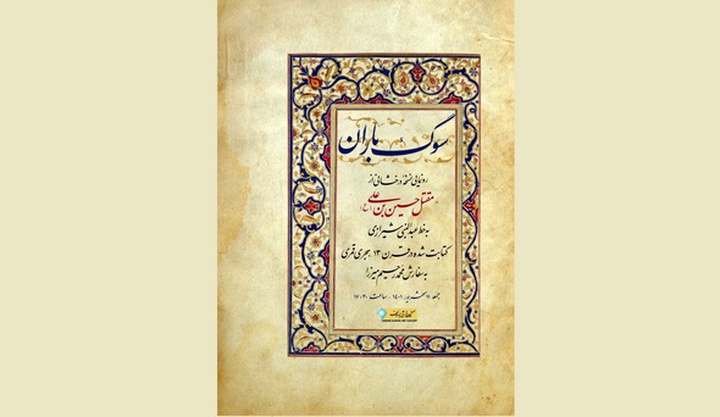 سوگ باران
رونمایی نسخهٔ درخشانی از
مقتل حسین بن علی (ع)
به خط عبدالنبی شیرازی
کتابت شده در قرن ۱۳ هجری قمری
به سفارش محمد رحیم میرزا
جمعه ۱۱ شهریور ۱۴۰۱ ـ ساعت ۱۷:۳۰